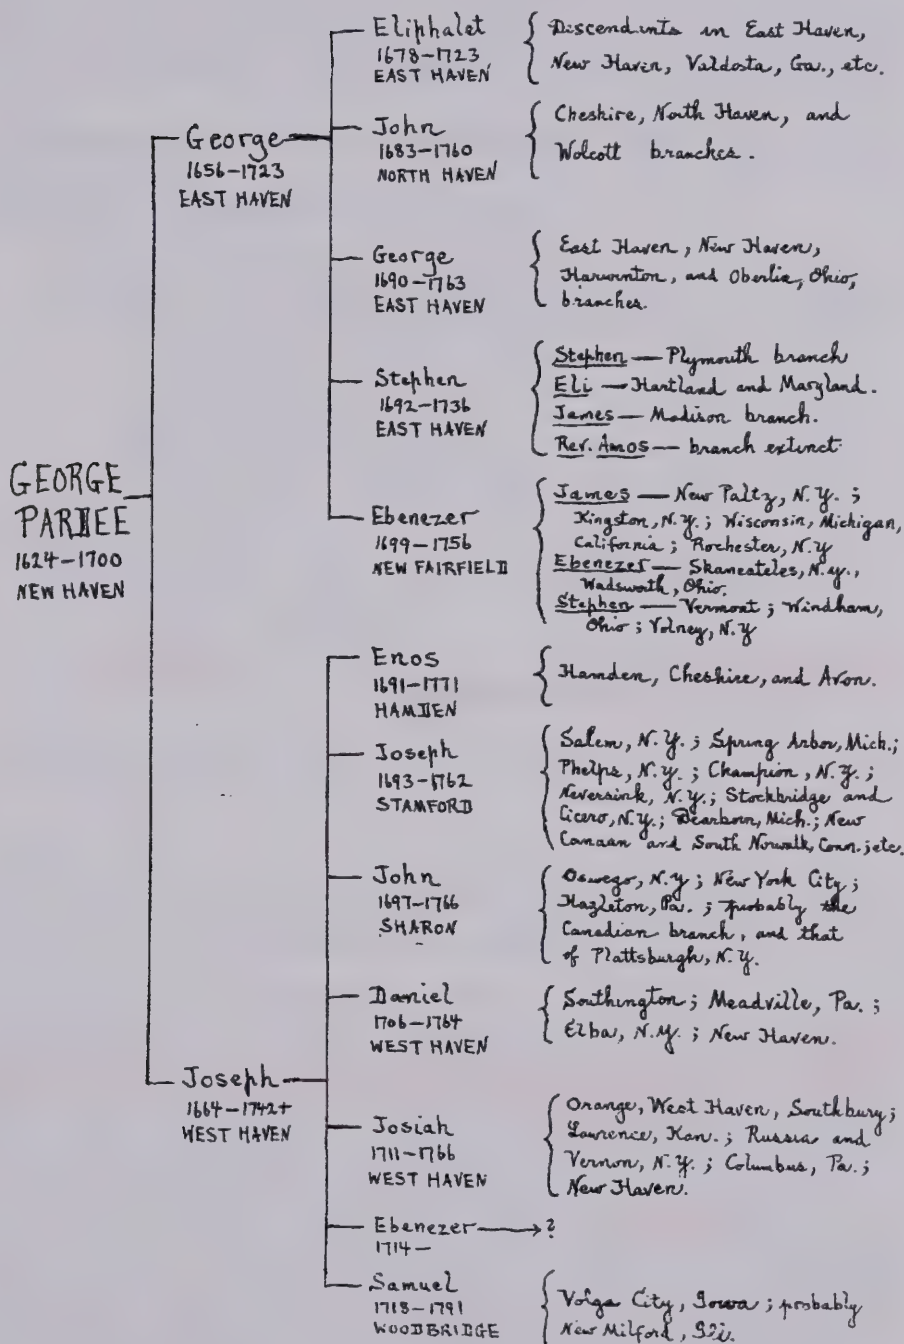 GEORGE
PARDEE
1624-1700
NEW HAVEN
George
1656-1723
EAST HAVEN
Eliphalet
1678-1723
EAST HAVEN
Discendints in East Haven,
New Haven, Valdosta, Ga., etc.
John
1683-1760
NORTH HAVEN
Cheshire, North Haven, and
Wolcott branches.
George
1690-1763
EAST HAVEN
East Haven, New Haven,
Harwinton, and Oberlin, Ohio,
branches.
Stephen
1692-1736
EAST HAVEN
Stephen — Plymouth branch
Eli — Hartland and Maryland.
James — Madison branch.
Rev. Amos — branch extinct
Ebenezer
1699-1756
NEW FAIRFIELD
James — New Paltz, N.Y. ;
Kingston, N.Y. ; Wisconsin, Michigan,
California ; Rochester, N.Y
Ebenezer — Skaneateles, N.Y.,
Wadsworth, Ohio.
Stephen — Vermont ; Windham,
Ohio ; Volney, N.Y
Joseph
1664-1742+
WEST HAVEN
Enos
1691-1771
HAMDEN
Hamden, Cheshire, and Avon.
Joseph
1693-1762
STAMFORD
Salem, N.Y. ; Spring Arbor, Mich.;
Phelps, N.Y. ; Champion, N.Y. ;
Neversink, N.Y. ; Stockbridge and
Cicero, N.Y. ; Dearborn, Mich. ; New
Canaan and South Norwalk, Conn. ; etc.
John
1697-1766
SHARON
Oswego, N.Y ; New York City ;
Hazleton, Pa. ; probably the
Canadian branch, and that
of Plattsburgh, N.Y.
Daniel
1706-1764
WEST HAVEN
Southington ; Meadville, Pa. ;
Elba, N.Y. ; New Haven.
Josiah
1711-1766
WEST HAVEN
Orange, West Haven, Southbury ;
Lawrence, Kan. ; Russia and
Vernon, N.Y. ; Columbus, Pa. ;
New Haven.
Ebenezer → ?
1714-
Samuel
1718-1791
WOODBRIDGE
Volga City, Iowa ; probably
New Milford, Ill.